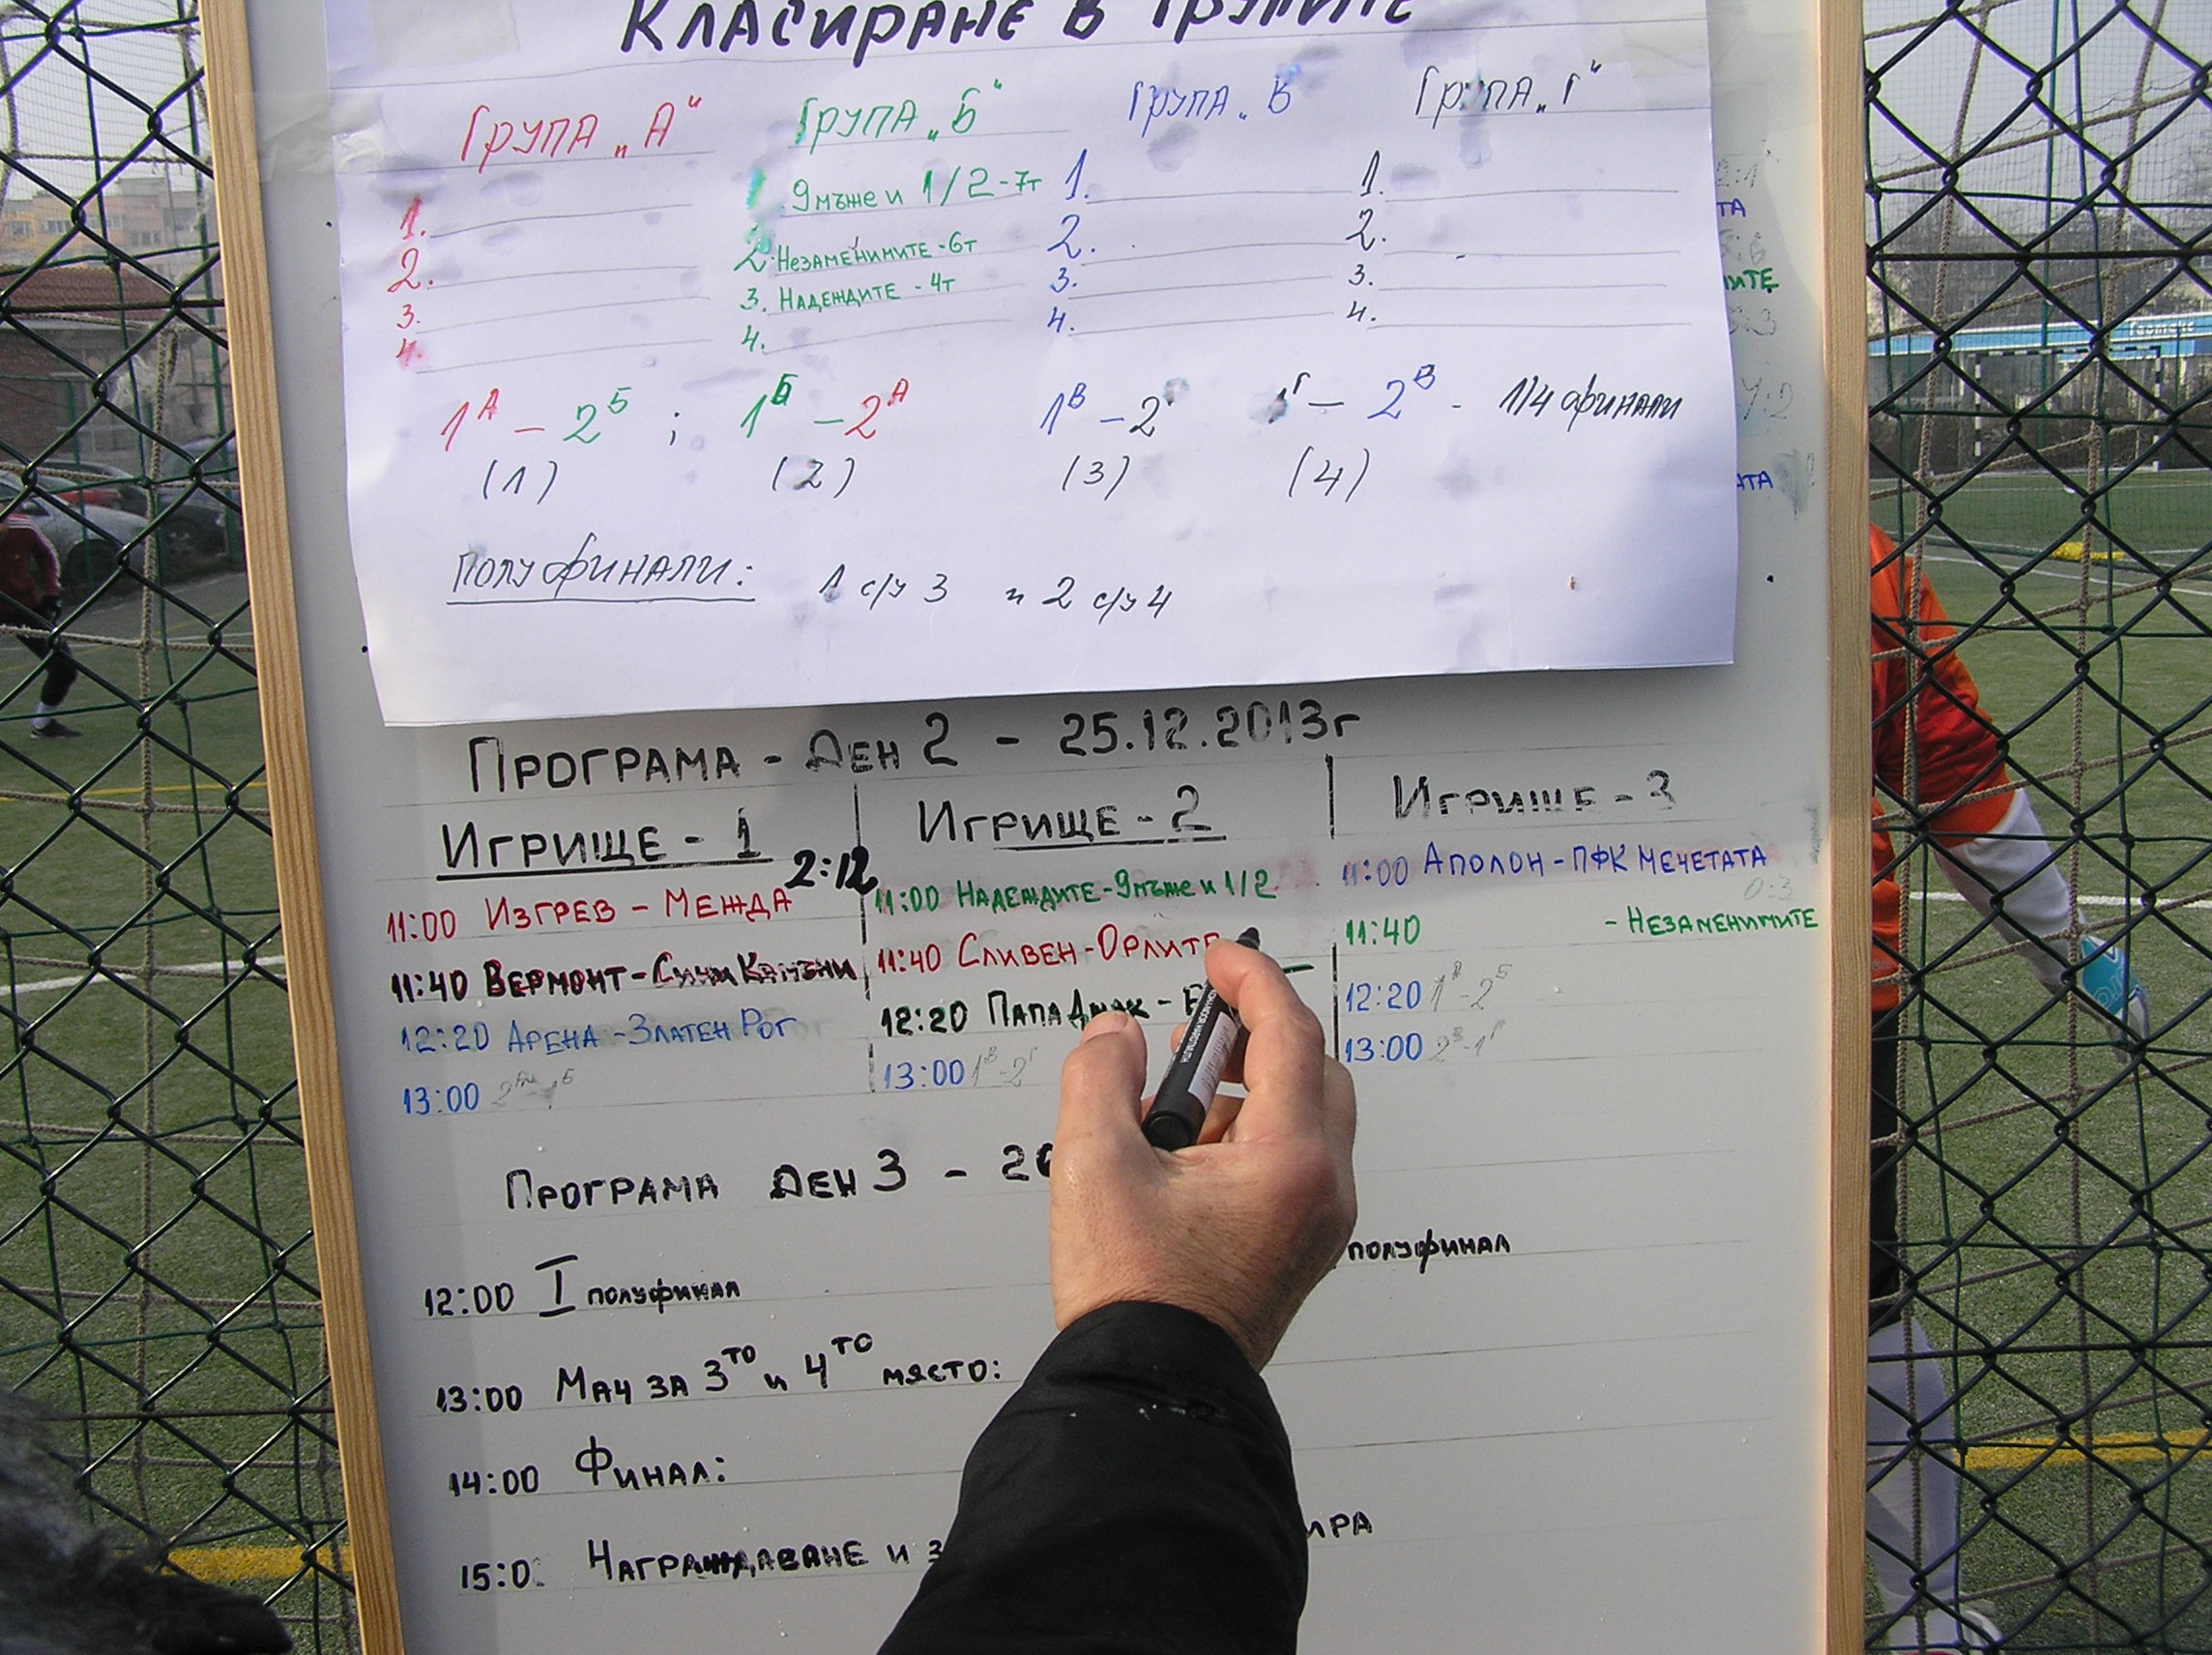 КЛАСИРАНЕ В ГРУПИТЕ
ГРУПА „А“
1.
2.
3.
4.
ГРУПА „Б“
1 9мъже и 1/2-7т
2. НЕЗАМЕНИМИТЕ-6т
3. НАДЕЖДИТЕ - 4т
4.
ГРУПА „В“
1.
2.
3.
4.
ГРУПА „Г“
1.
2.
3.
4.
1А - 2Б ; 1Б - 2А 1В - 2Г 1Г - 2В - 1/4 финали
(1) (2) (3) (4)
ПОЛУФИНАЛИ: 1 с/у 3 и 2 с/у 4
ПРОГРАМА - ДЕН 2 - 25.12.2013г
ИГРИЩЕ - 1
2:12
11:00 ИЗГРЕВ - МЕЖДА
11:40 ВЕРМОНТ - СИНИ КАМЪНИ
12:20 АРЕНА - ЗЛАТЕН РОГ
13:00
ИГРИЩЕ - 2
11:00 НАДЕЖДИТЕ-9мъже и 1/2
11:40 СЛИВЕН-ОРЛИТЕ
12:20 ПАПА
13:00 1В-2Г
ИГРИЩЕ - 3
11:00 АПОЛОН-ПФК МЕЧЕТАТА
0:3
11:40 - НЕЗАМЕНИМИТЕ
12:20 1А-2Б
13:00 2В-1Г
ПРОГРАМА ДЕН 3 -
12:00 I полуфинал
полуфинал
13:00 МАЧ ЗА 3ТО и 4ТО МЯСТО:
14:00 ФИНАЛ:
15:0 НАГРАЖДАВАНЕ И